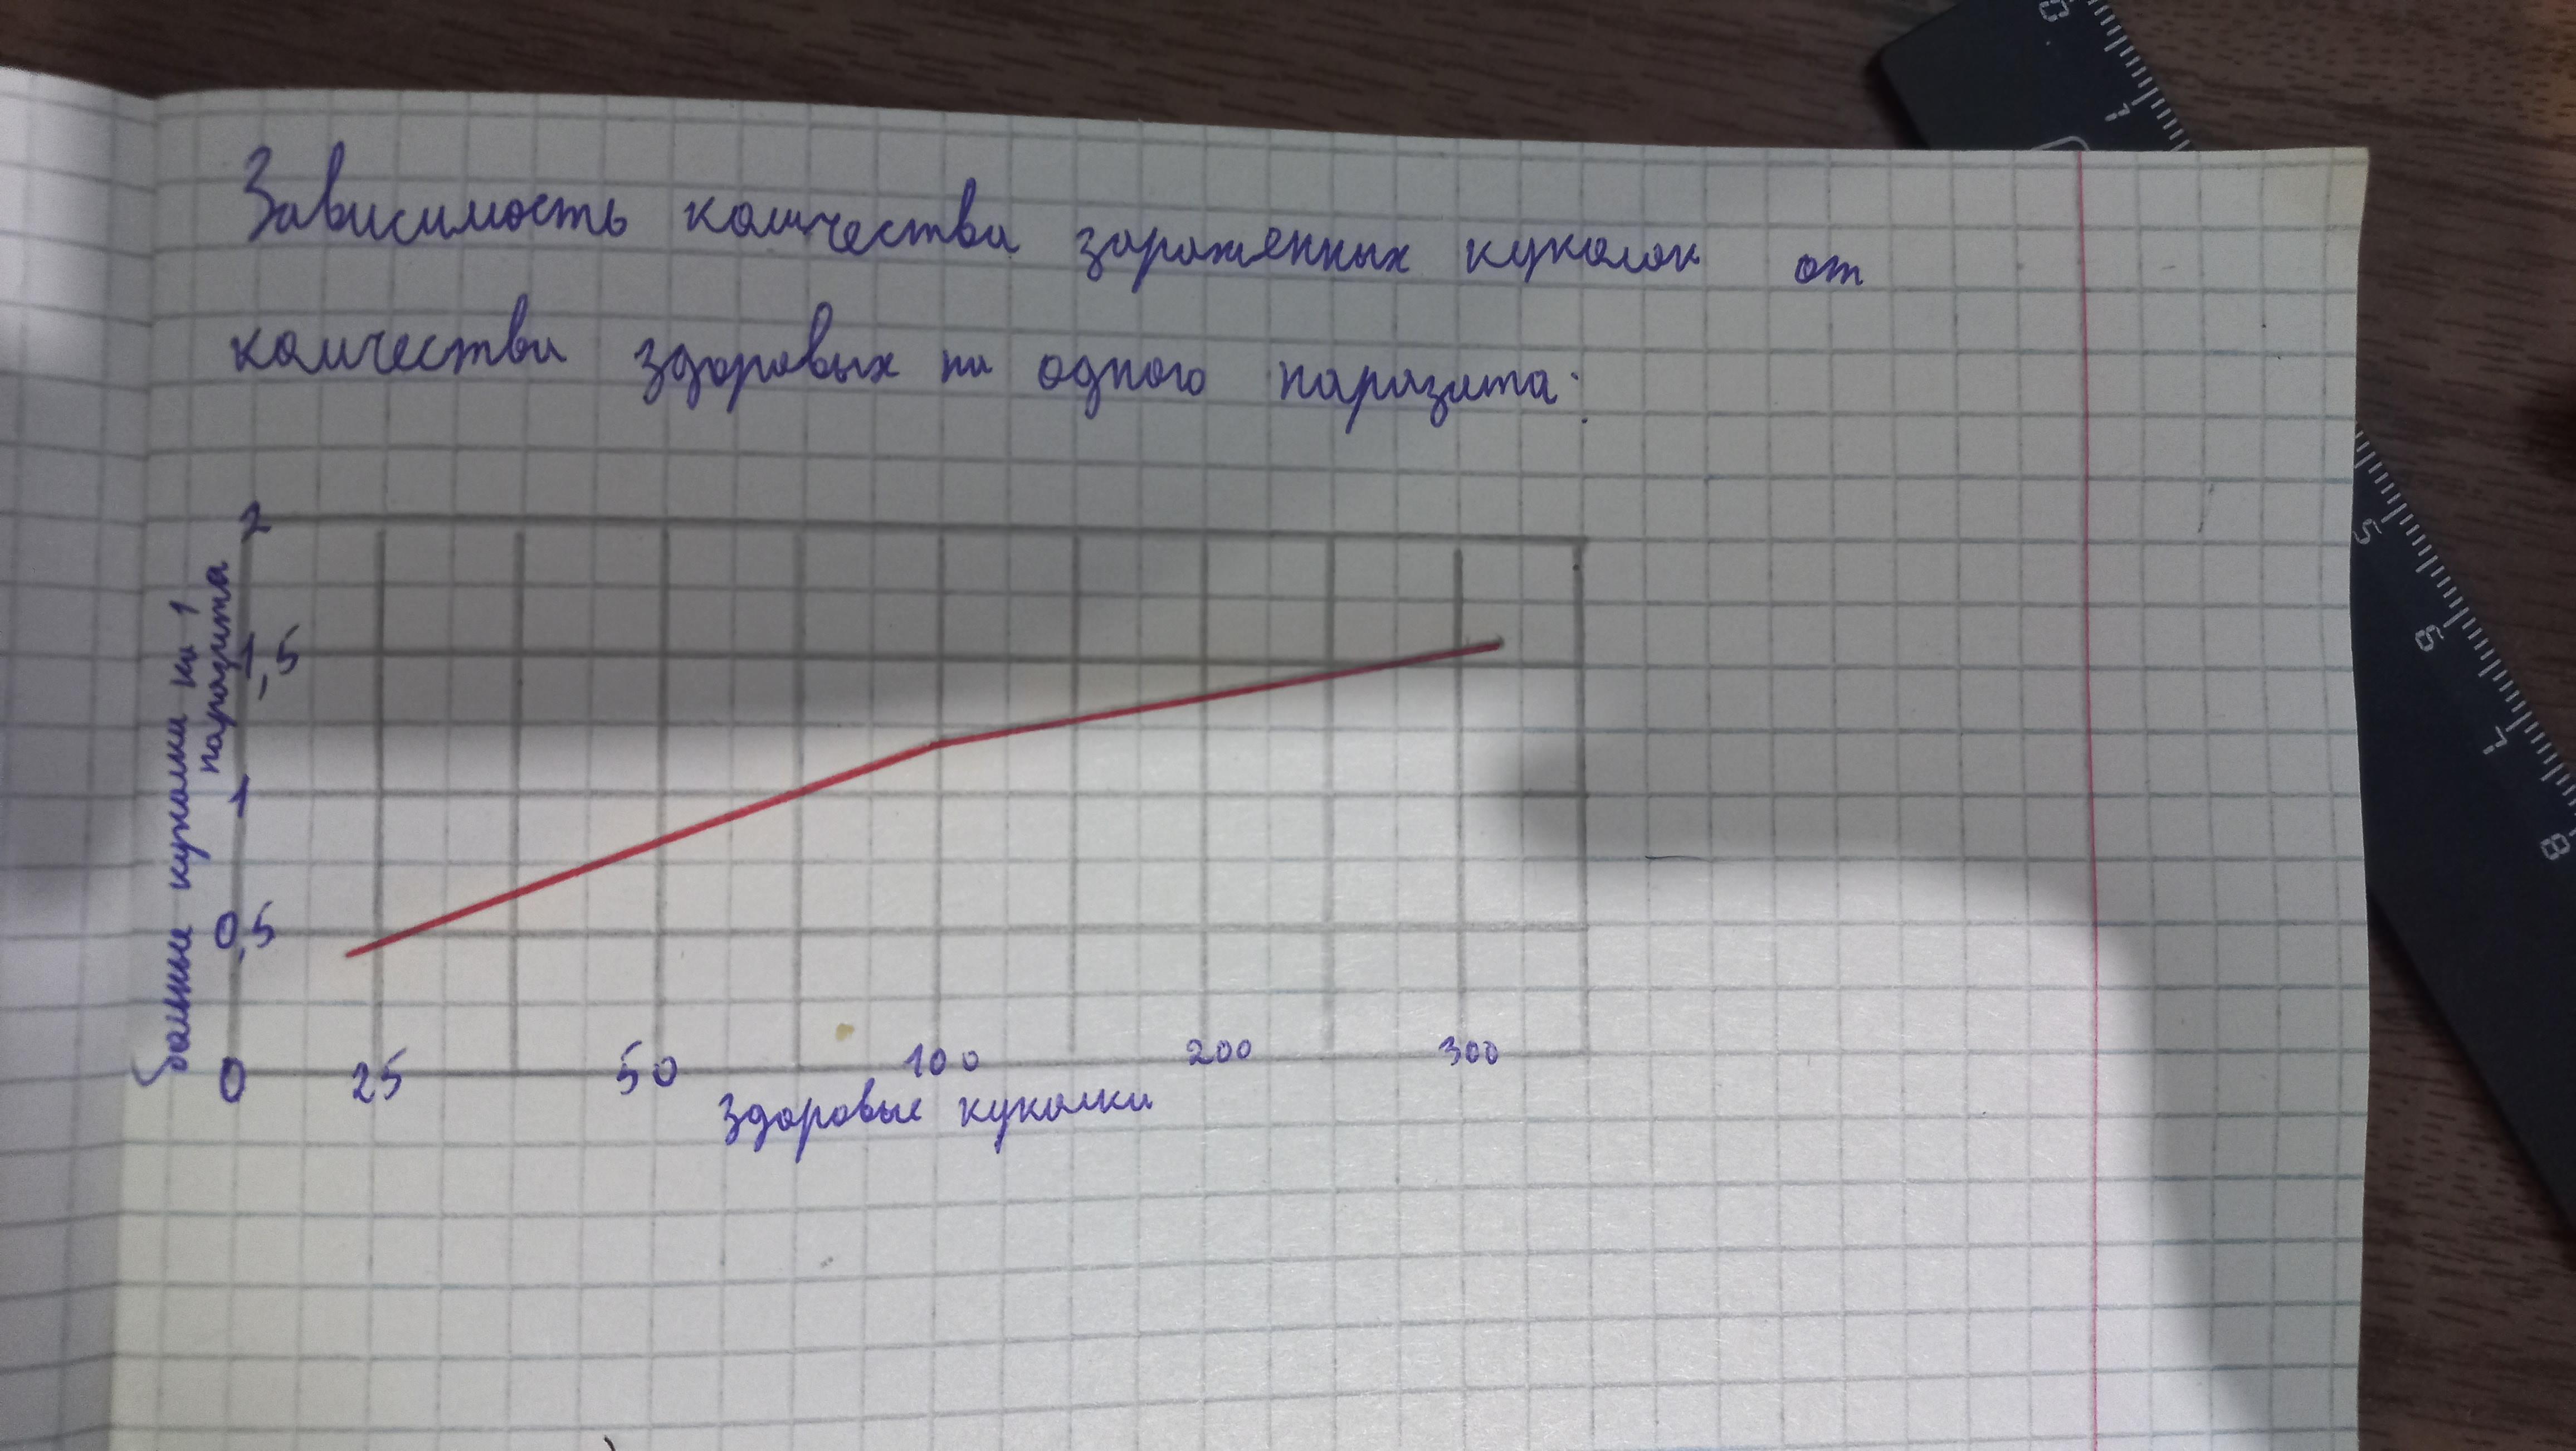 Зависимость количества зараженных куколок от
количества здоровых на одного паразита:
2
1,5
1
0,5
0
больные куколки на 1
паразита
25 50 100 200 300
здоровые куколки
0
1
5
6
7
8